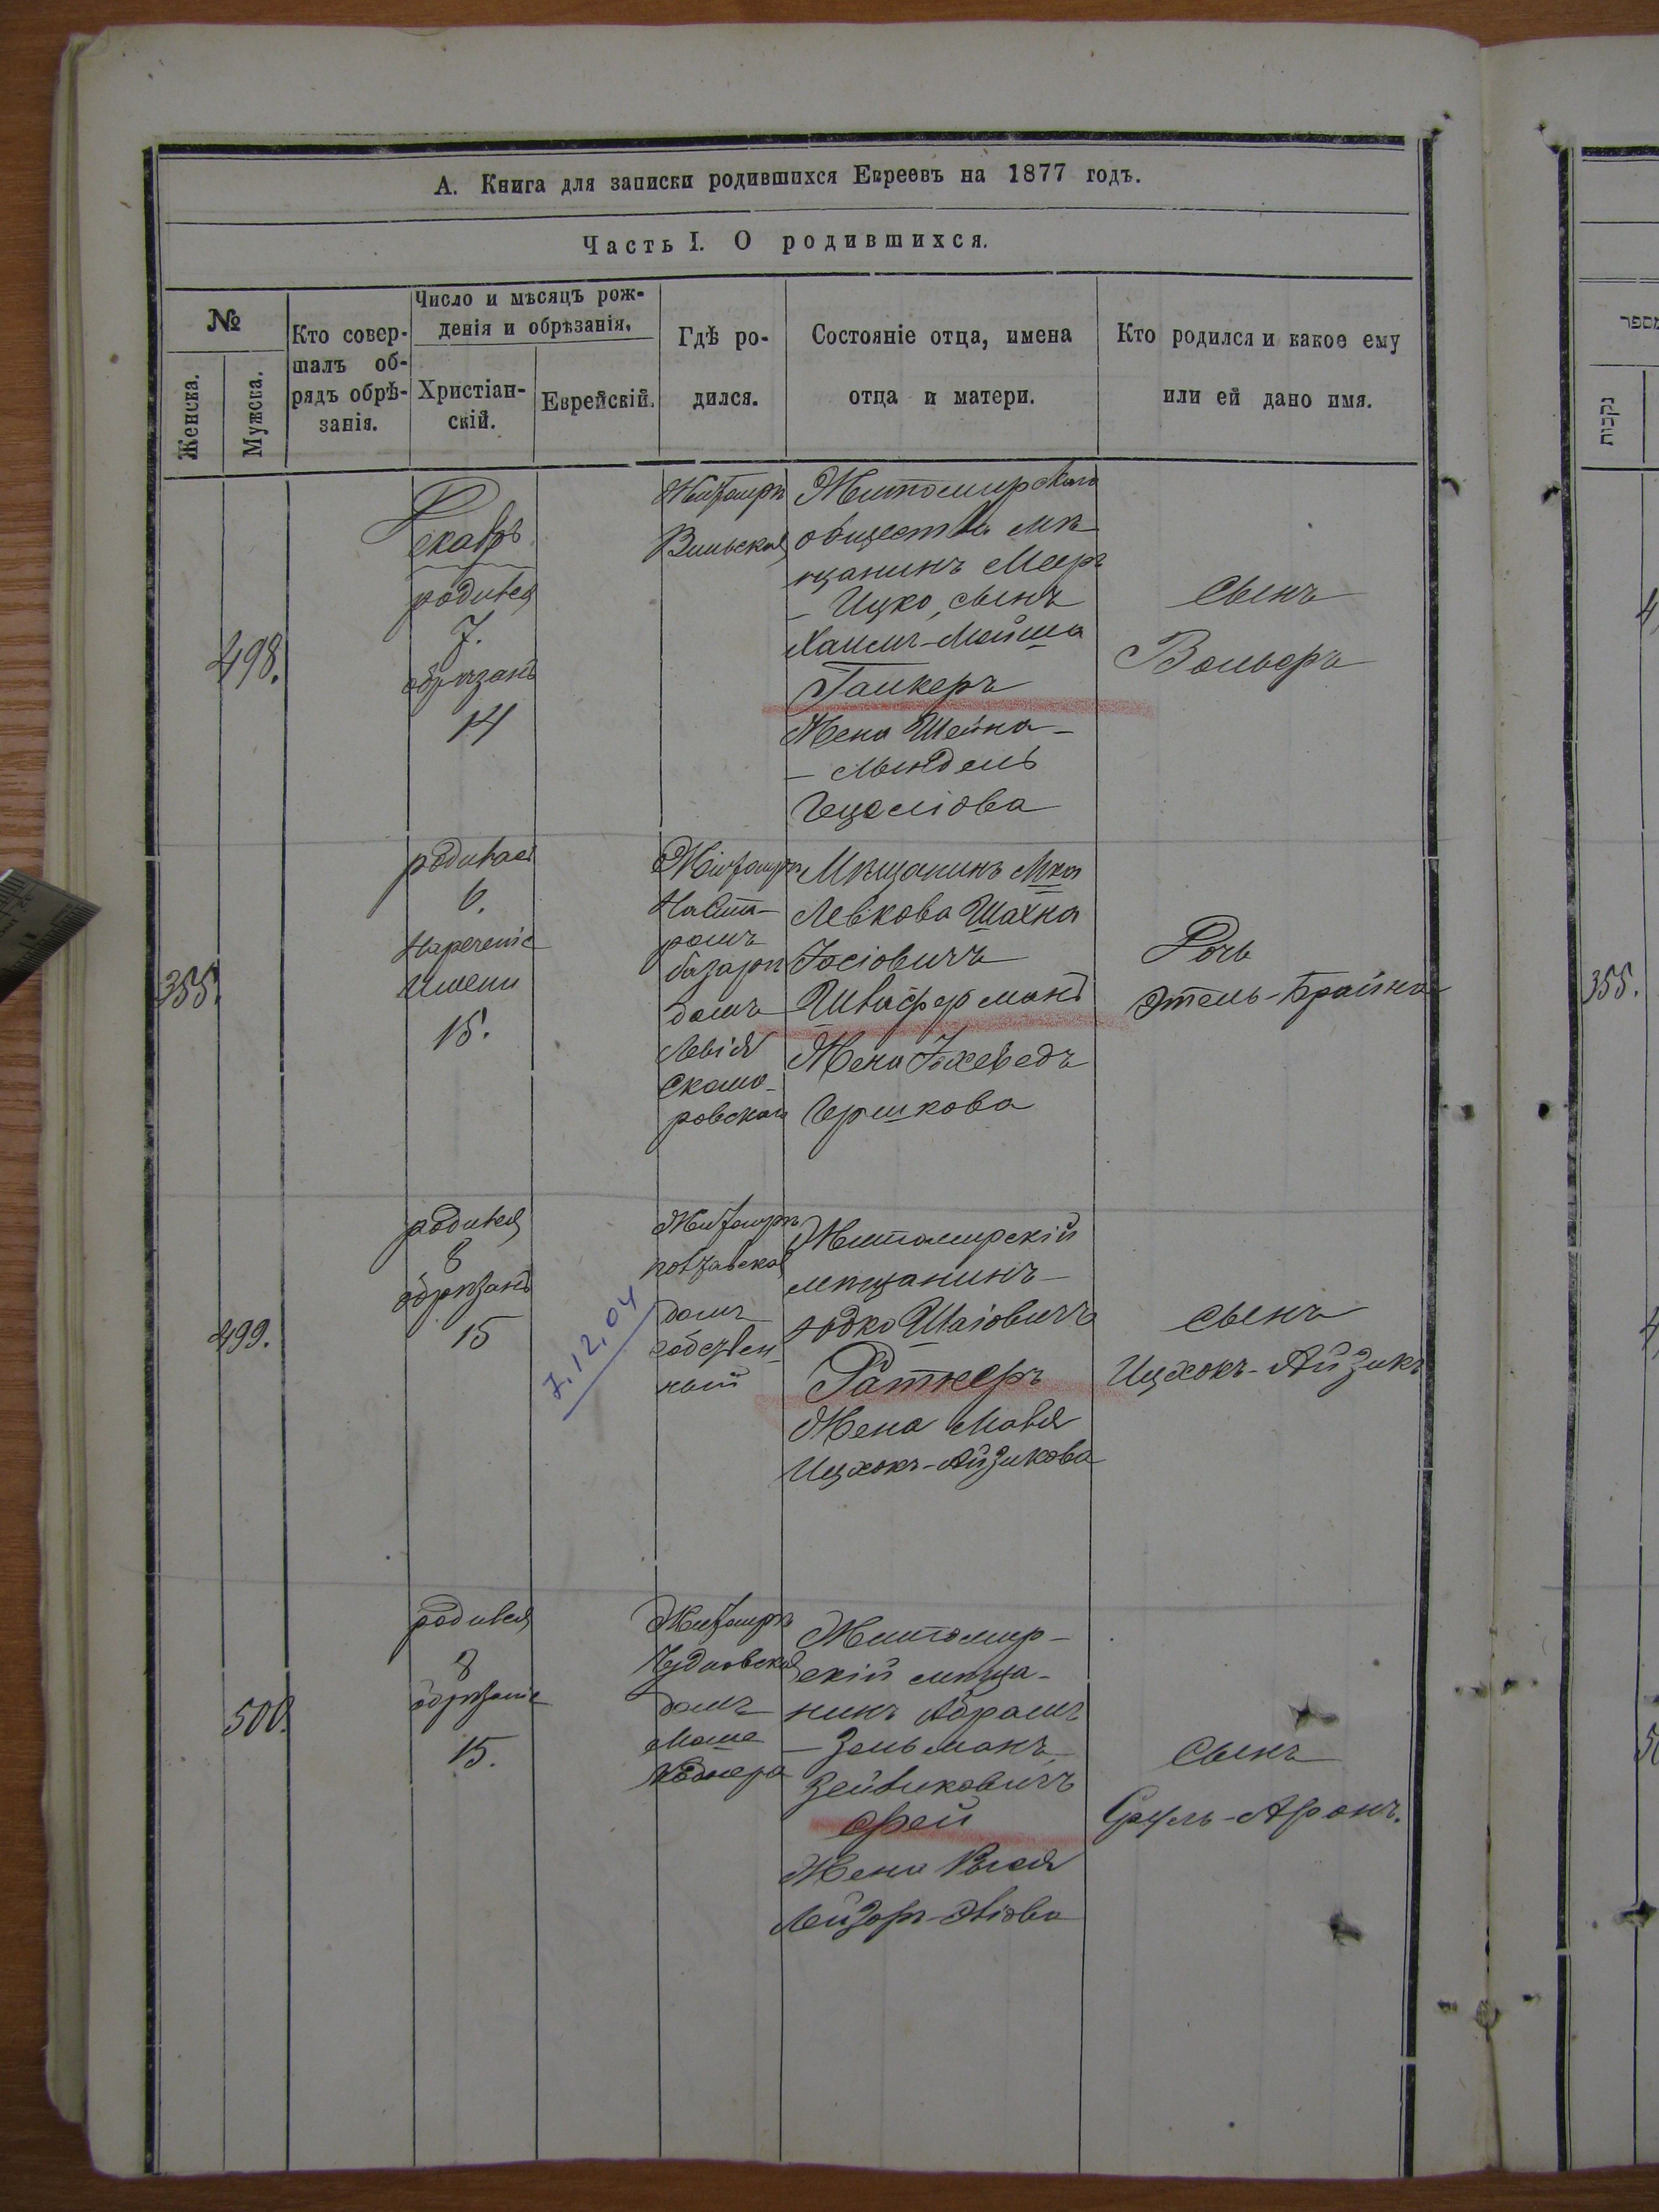 А. Книга для записки родившихся Евреевъ на 1877 годъ.
Часть I. О родившихся.
№
Женска.
Мужска.
Кто совер-
шалъ об-
рядъ обрѣ-
занія.
Число и мѣсяцъ рож-
денія и обрѣзанія.
Христіан-
скій.
Еврейскій.
Гдѣ ро-
дился.
Состояніе отца, имена
отца и матери.
Кто родился и какое ему
или ей дано имя.
498.
Декабрь
родился
7.
обрѣзанъ
14
Житомиръ
Вильская
Житомирскаго
общества мѣ
щанинъ Меер
- Ицко, сынъ
Хаимъ-Мойша
Жена Шейна-
- Мындель
сынъ
Вольфъ
355.
родилась
6.
Нареченіе
Имени
15.
Житомиръ
На ста-
ромъ
базарѣ
домъ
Левія
Скамо-
ровскаго
Мѣщанинъ Мка
Левкова Шахна
Іосіовичъ
Швафферманъ
Жена Іохеведъ
Гершкова
Дочь
Этель-Брайна
499.
родился
8
обрѣзанъ
15
7.12.04
Житомиръ
домъ
собствен-
ный
Житомирскій
мѣщанинъ-
Іодко Шаіовичъ
Ратнеръ
Жена Мавя
Ицхокъ-Айзикова
сынъ
Ицхокъ-Айзикъ
500.
родился
8
обрѣзаніе
15.
Житомиръ
Чудновская
домъ
Житомир-
скій мѣща-
нинъ Абрамъ
- Зальманъ
Зейвиковичъ
Фрей
Жена Рыся
Сынъ
Сруль-Аронъ.
מספר
נקבות
355.